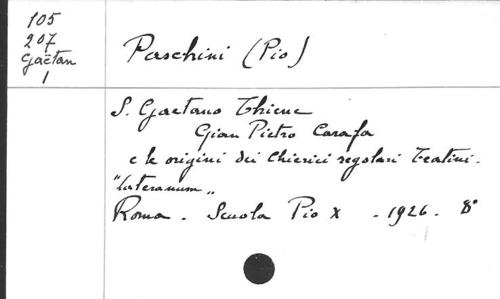 105
207
Gaëtan
1
Paschini (Pio)
S. Gaetano Thiene
Gian Pietro Carafa
e le origini dei Chierici regolari Teatini.
"Lateranum"
Roma. Scuola Pio X - 1926. 8°